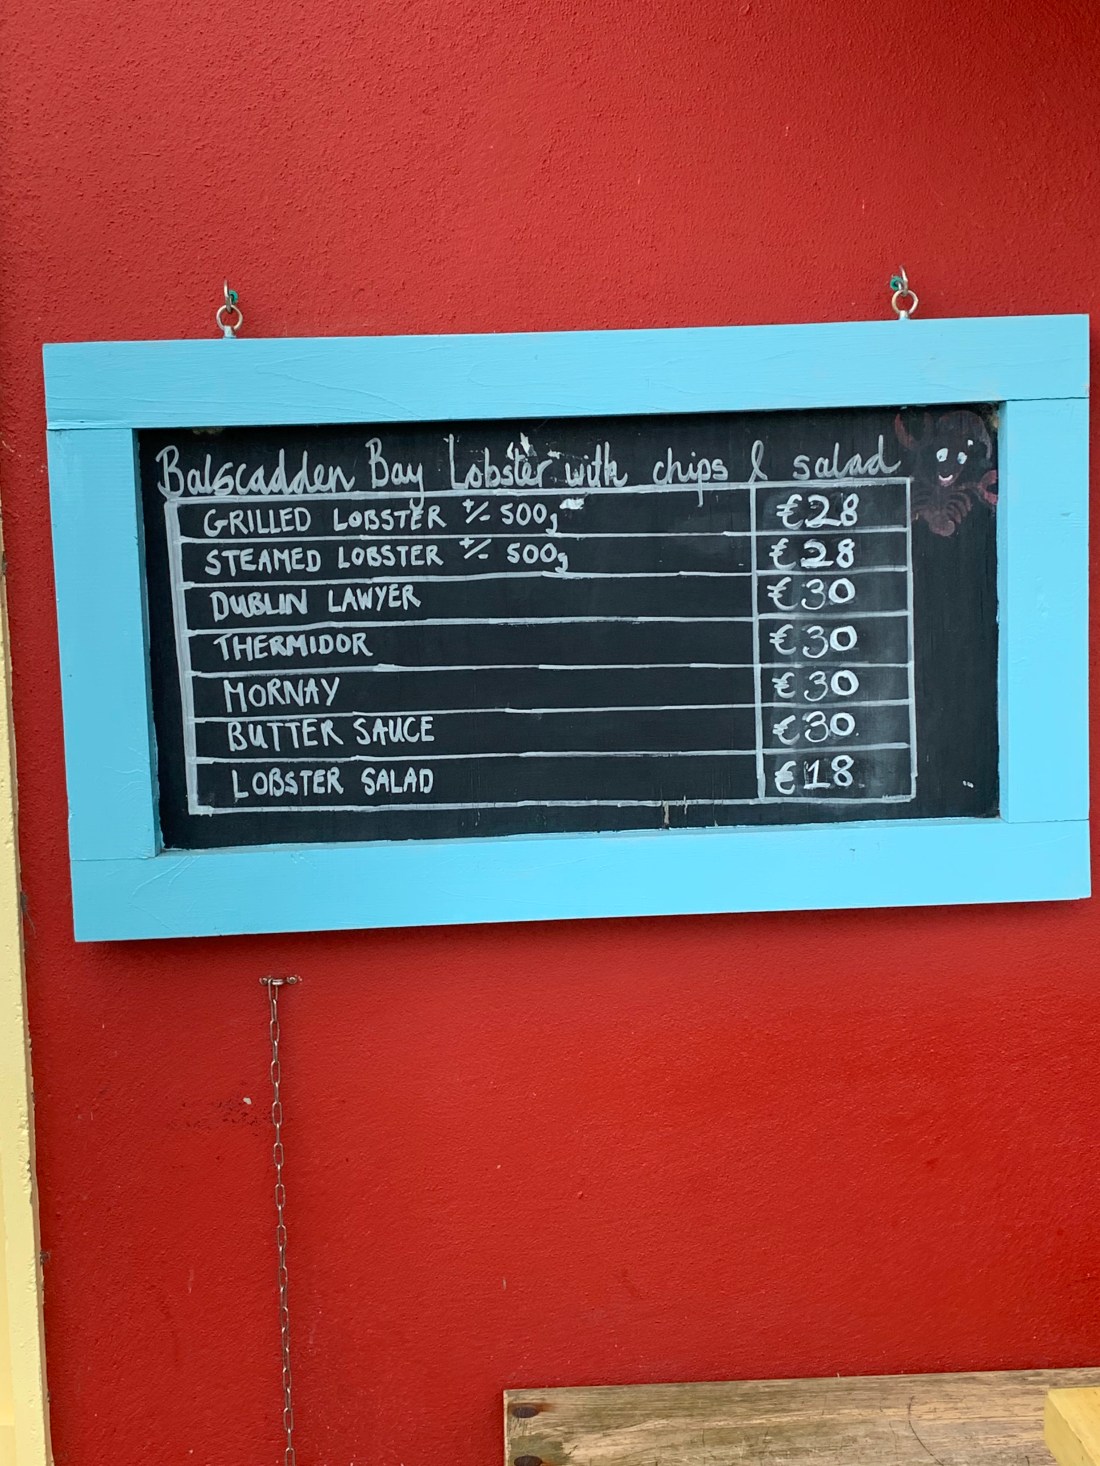 Balscadden Bay Lobster with chips & salad
GRILLED LOBSTER +/- 500g €28
STEAMED LOBSTER +/- 500g €28
DUBLIN LAWYER €30
THERMIDOR €30
MORNAY €30
BUTTER SAUCE €30
LOBSTER SALAD €18